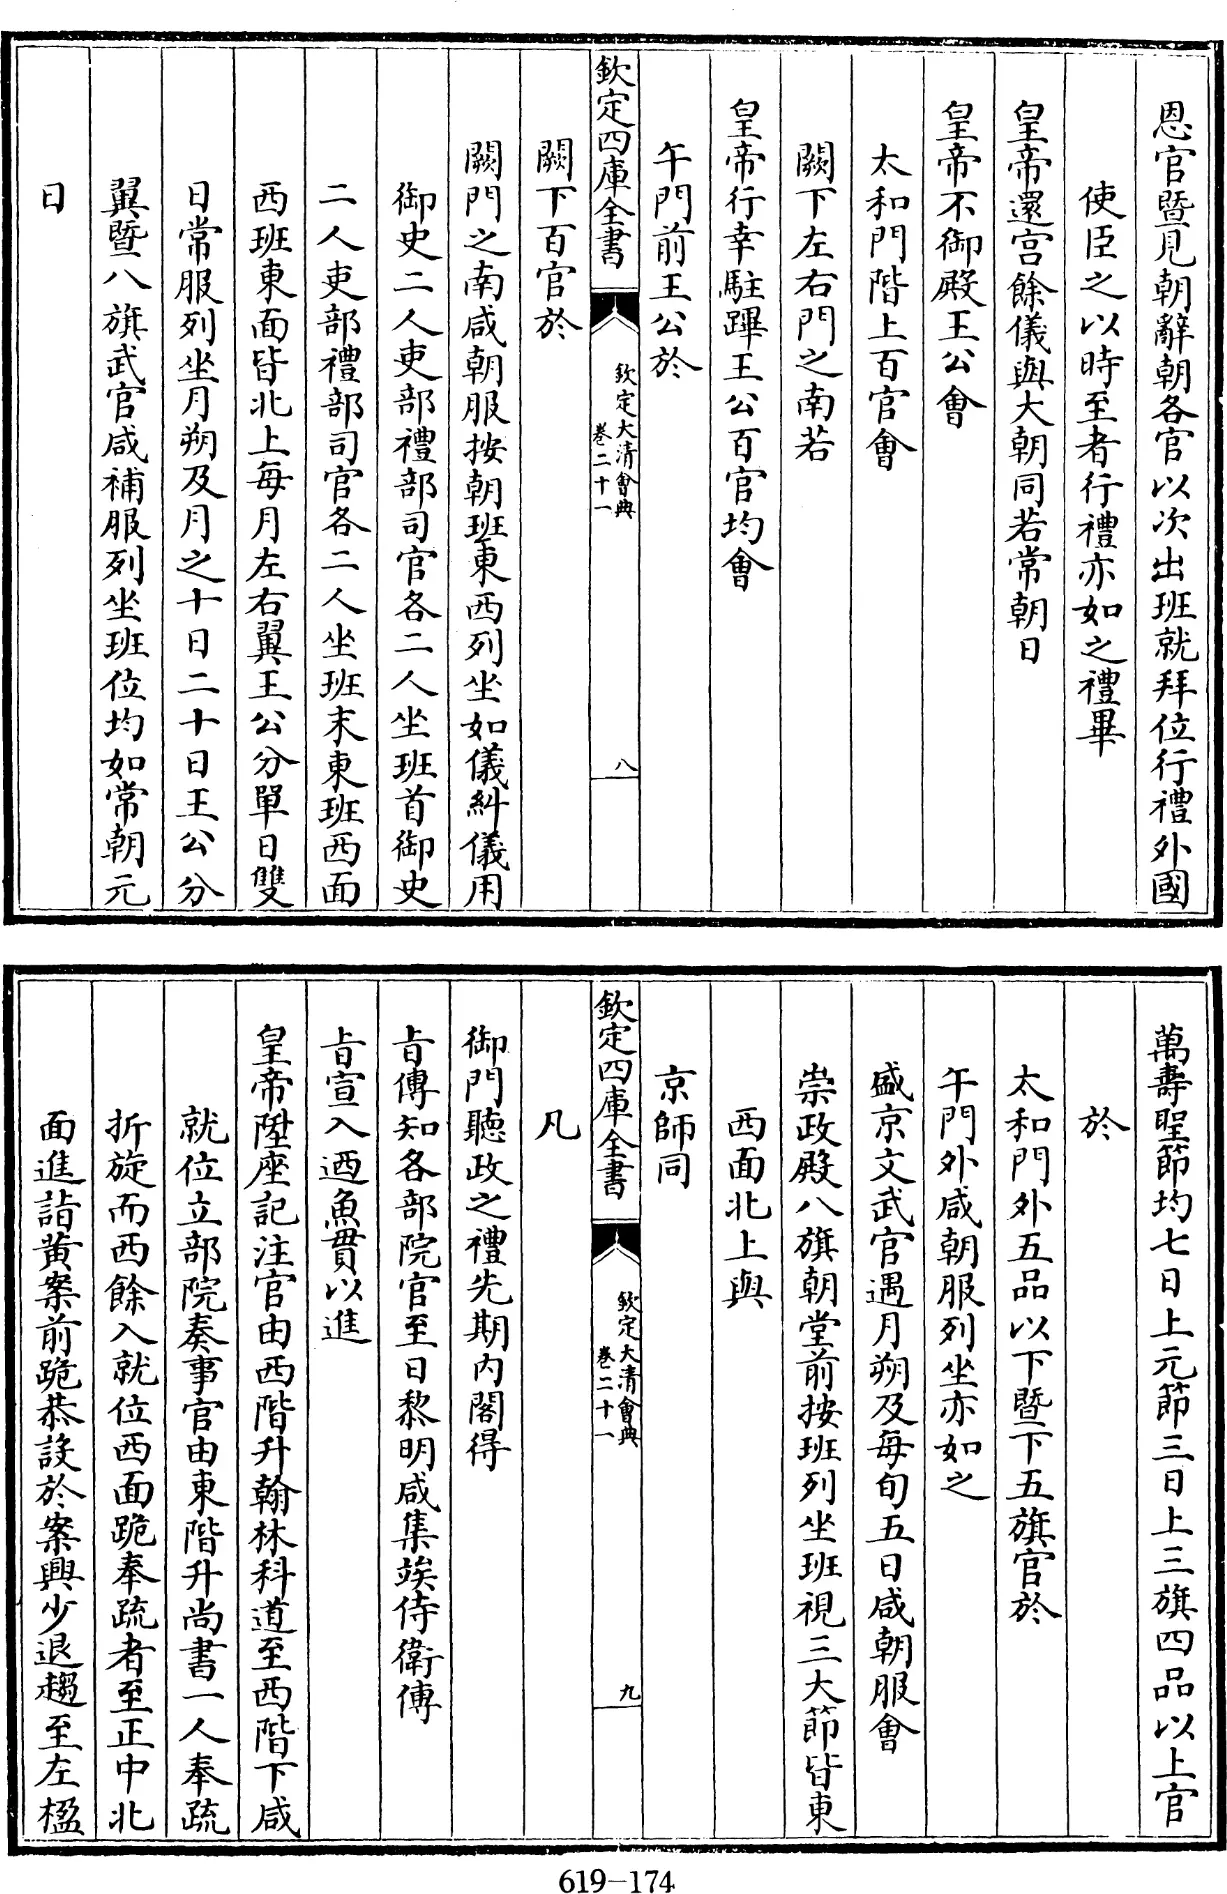 恩官暨見朝辭朝各官以次出班就拜位行禮外國
使臣之以時至者行禮亦如之禮畢
皇帝還宫餘儀與大朝同若常朝日
皇帝不御殿王公會
太和門階上百官會
闕下左右門之南若
皇帝行幸駐蹕王公百官均會
午門前王公於
欽定四庫全書
欽定大清會典
卷二十一
八
闕下百官於
闕門之南咸朝服按朝班東西列坐如儀糾儀用
御史二人吏部禮部司官各二人坐班首御史
二人吏部禮部司官各二人坐班末東班西面
西班東面皆北上每月左右翼王公分單日雙
日常服列坐月朔及月之十日二十日王公分
翼暨八旗武官咸補服列坐班位均如常朝元
日
萬壽聖節均七日上元節三日上三旗四品以上官
於
太和門外五品以下暨下五旗官於
午門外咸朝服列坐亦如之
盛京文武官遇月朔及每旬五日咸朝服會
崇政殿八旗朝堂前按班列坐班視三大節皆東
西面北上與
京師同
欽定四庫全書
欽定大清會典
卷二十一
九
凡
御門聽政之禮先期内閣得
旨傳知各部院官至日黎明咸集竢侍衛傳
旨宣入迺魚貫以進
皇帝陞座記注官由西階升翰林科道至西階下咸
就位立部院奏事官由東階升尚書一人奉疏
折旋而西餘入就位西面跪奉疏者至正中北
面進詣黄案前跪恭設於案興少退趨至左楹
619-174